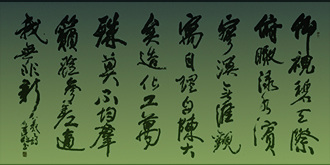 仰視碧天際
俯瞰淥水濱
寥漠無涯觀
寓目理自陳大
矣造化工萬
殊莫不均羣
籟雖參差適
我無非新